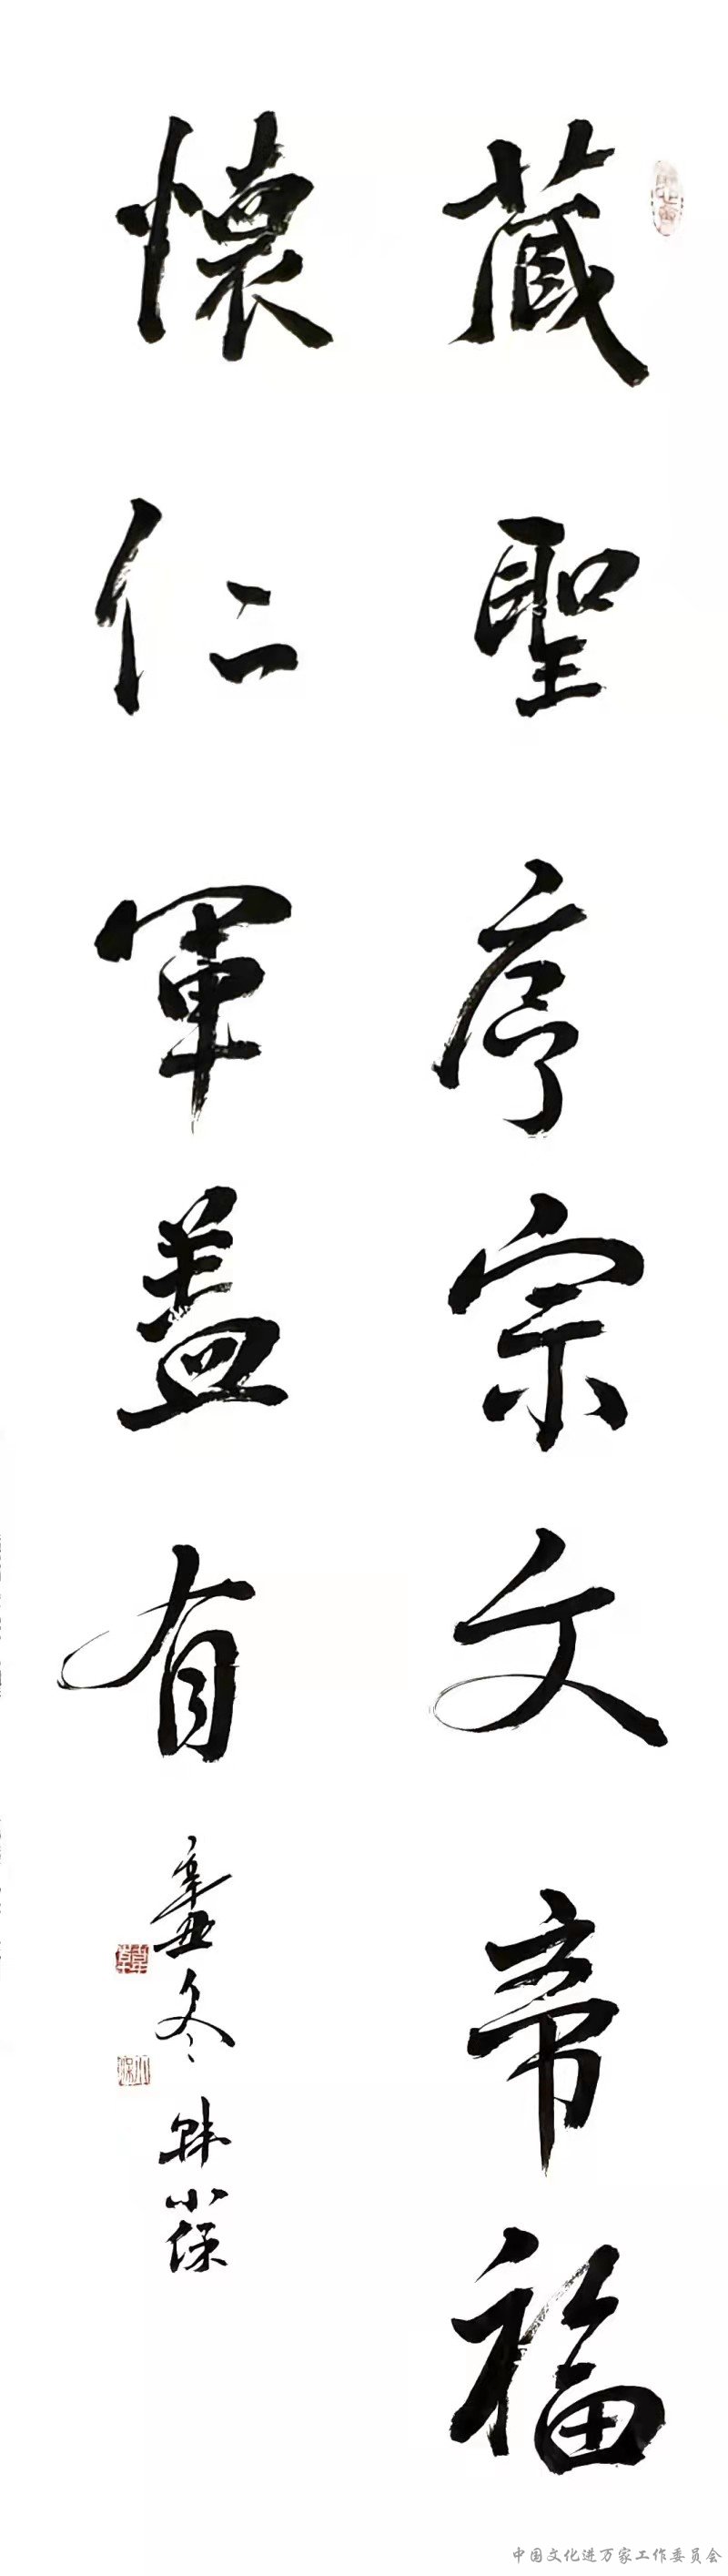 藏聖序宗文帝福
懷仁軍盖有
辛丑冬韩小保
中国文化进万家工作委员会